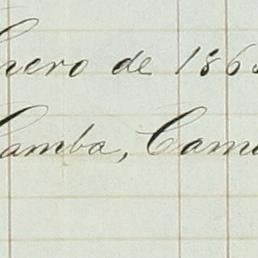 Enero de 186
Camba, Cam